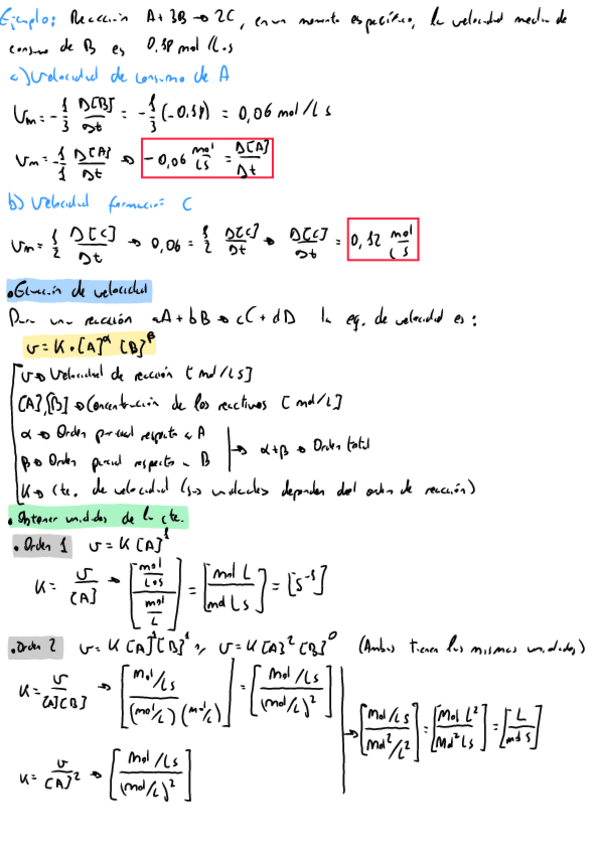 Ejemplo: Reacción A + 3B → 2C, en un momento específico, la velocidad media de
consumo de B es 0,18 mol/L·s
a) Velocidad de consumo de A
Vm = -1/3 Δ[B]/Δt = -1/3 (-0,18) = 0,06 mol/L s
Vm = -1/1 Δ[A]/Δt → -0,06 mol/LS = Δ[A]/Δt
b) Velocidad formación C
Vm = 1/2 Δ[C]/Δt → 0,06 = 1/2 Δ[C]/Δt → Δ[C]/Δt = 0,12 mol/L s
• Ecuación de velocidad
Para una reacción aA + bB → cC + dD la eq. de velocidad es:
v = K · [A]^α [B]^β
v → Velocidad de reacción [mol/LS]
[A],[B] → Concentración de los reactivos [mol/L]
α → Orden parcial respecto a A
β → Orden parcial respecto a B → α+β → Orden total
K → Cte. de velocidad (sus unidades dependen del orden de reacción)
• Obtener unidades de la cte.
• Orden 1 v = K [A]^1
K = v/[A] → [(mol/L·s)/(mol/L)] = [mol L/mol L s] = [s^-1]
• Orden 2 v = K [A]^1 [B]^1 v = K [A]^2 [B]^0 (Ambas tienen las mismas unidades)
K = v/[A][B] → [(mol/Ls)/(mol/L)(mol/L)] = [(mol/Ls)/(mol/L)^2]
→ [(mol/Ls)/(mol^2/L^2)] = [mol L^2/mol^2 L s] = [L/mol s]
K = v/[A]^2 → [(mol/Ls)/(mol/L)^2]